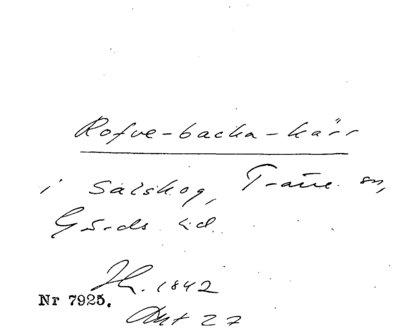 Rofve-backa-kärr
i Salskog, Träne sn,
Gärds hd.
1842
Nr 7925.
Akt 27